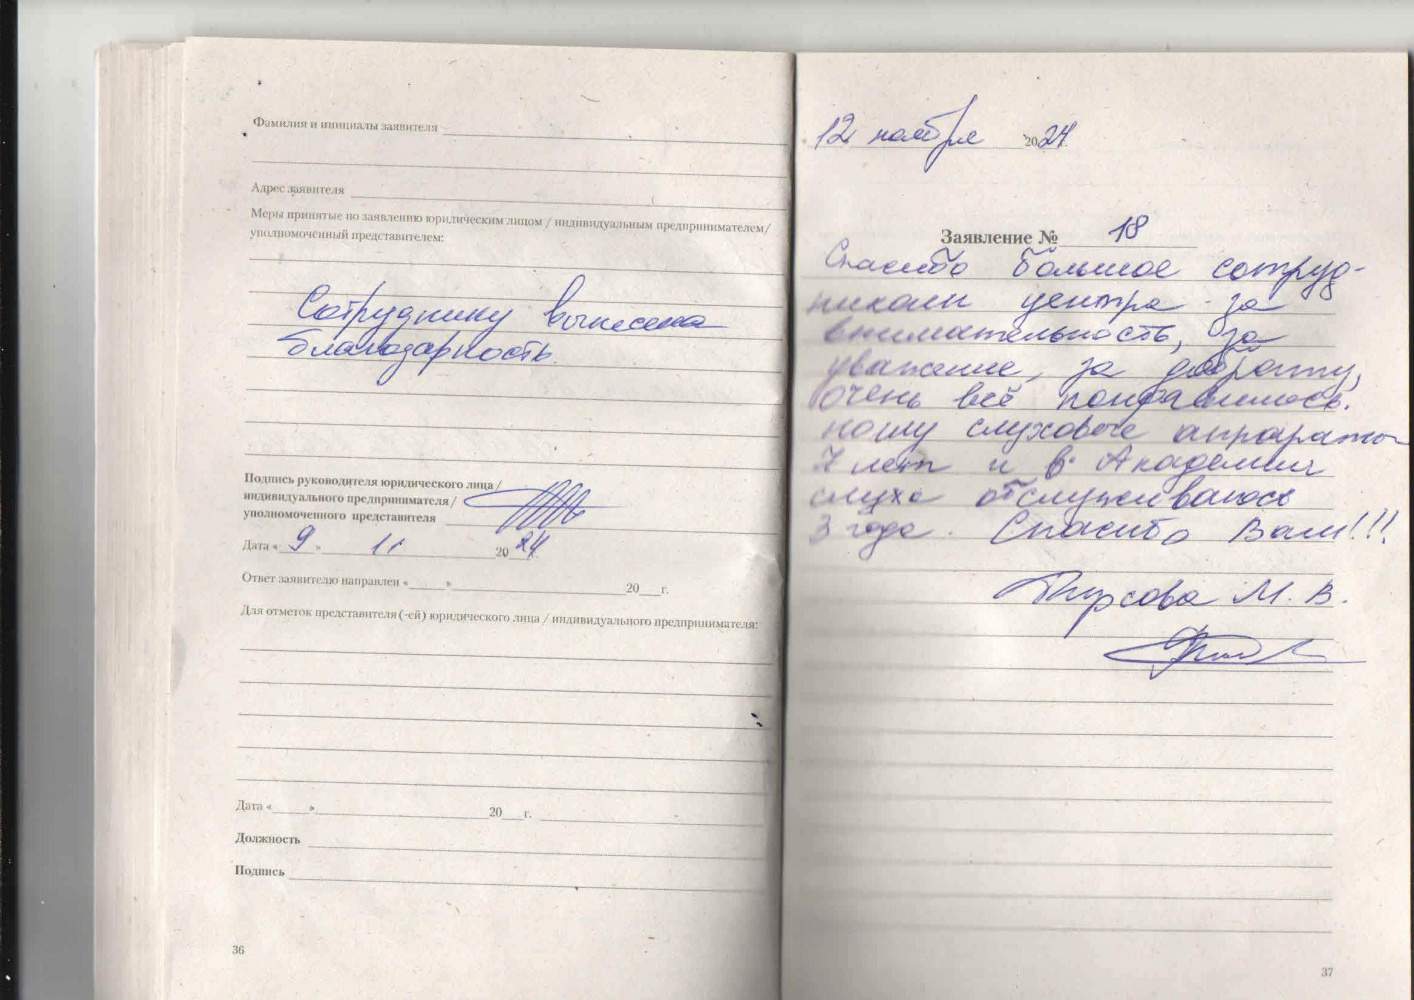 Фамилия и инициалы заявителя
Адрес заявителя
Меры принятые по заявлению юридическим лицом / индивидуальным предпринимателем/
уполномоченный представителем:
Сотруднику вынесена
благодарность.
Подпись руководителя юридического лица /
индивидуального предпринимателя /
уполномоченного представителя
Дата « 9 » 11 2024
Ответ заявителю направлен « » 20 г.
Для отметок представителя (-ей) юридического лица / индивидуального предпринимателя:
Дата « » 20 г.
Должность
Подпись
36
12 ноября 2024
Заявление № 18
Спасибо большое сотруд-
никам центра за
внимательность, за
уважение, за доброту,
очень всё понравилось.
ношу слуховые аппараты
7 лет и в Академии
слуха обслуживаюсь
3 года. Спасибо Вам!!!
М. В.
37